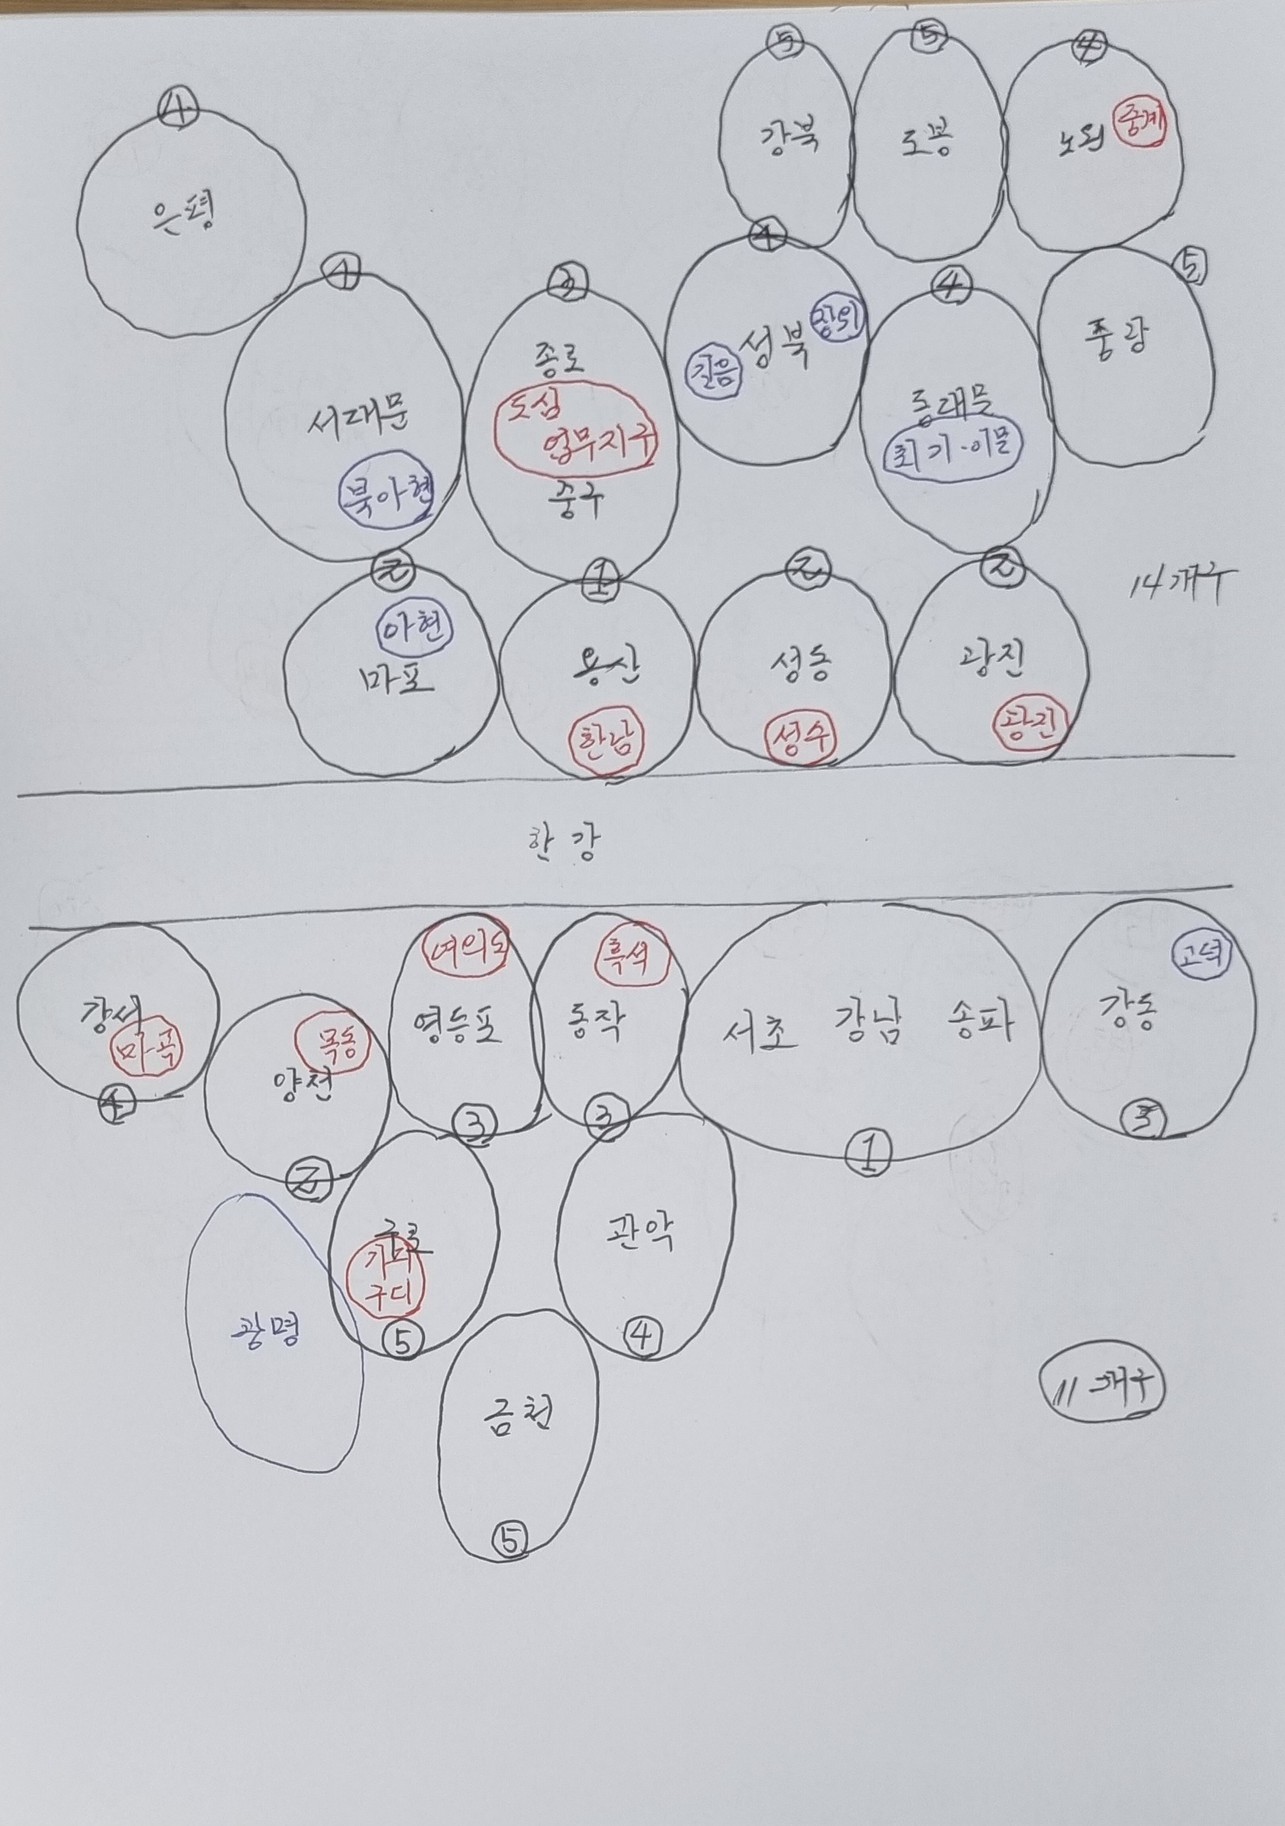 5
5
4
4
강북
도봉
노원
중계
은평
4
4
3
4
4
5
서대문
북아현
종로
도심
업무지구
중구
길음
성북
장위
동대문
회기·이문
중랑
2
1
2
2
14개구
아현
마포
용산
한남
성동
성수
광진
광진
한강
강서
마곡
4
목동
양천
2
여의도
영등포
3
흑석
동작
3
서초 강남 송파
1
고덕
강동
3
광명
구로
가디
구디
5
관악
4
금천
5
11개구